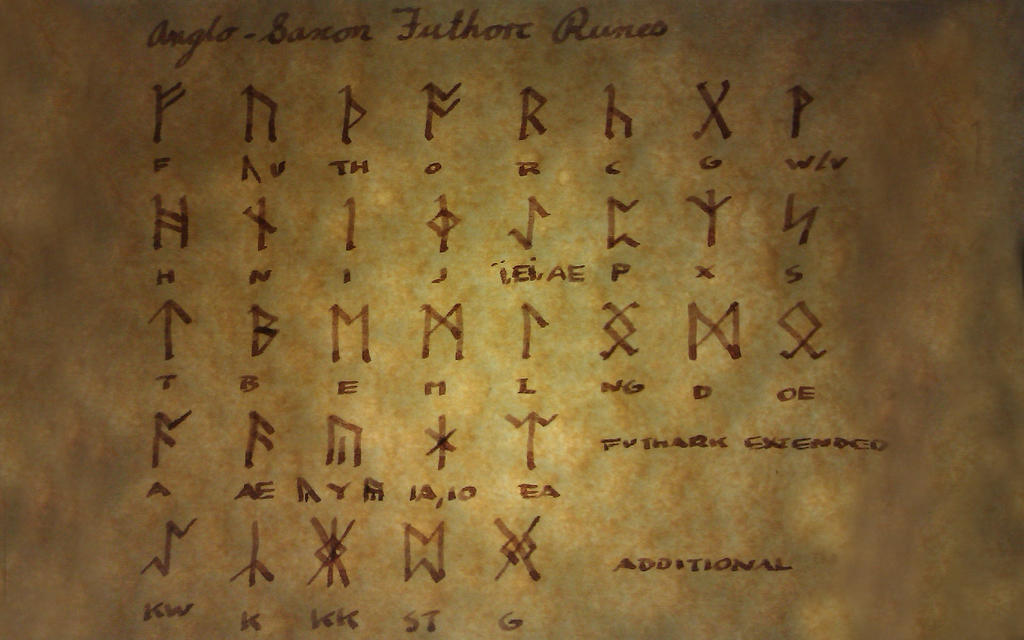 Anglo-Saxon Futhorc Runes
ᚠ ᚢ ᚦ ᚩ ᚱ ᚳ ᚷ ᚹ
F ᚢ U TH O R C G W/V
ᚻ ᚾ ᛁ ᛄ ᛇ ᛈ ᛉ ᛋ
H N I J Ï,EI,AE P X S
ᛏ ᛒ ᛖ ᛗ ᛚ ᛝ ᛞ ᛟ
T B E M L NG D OE
ᚪ ᚫ ᚣ ᛡ ᛠ FUTHARK EXTENDED
A AE ᚢ Y ᚣ IA,IO EA
ᛢ ᛣ ᛤ ᛥ ᚸ ADDITIONAL
KW K KK ST G